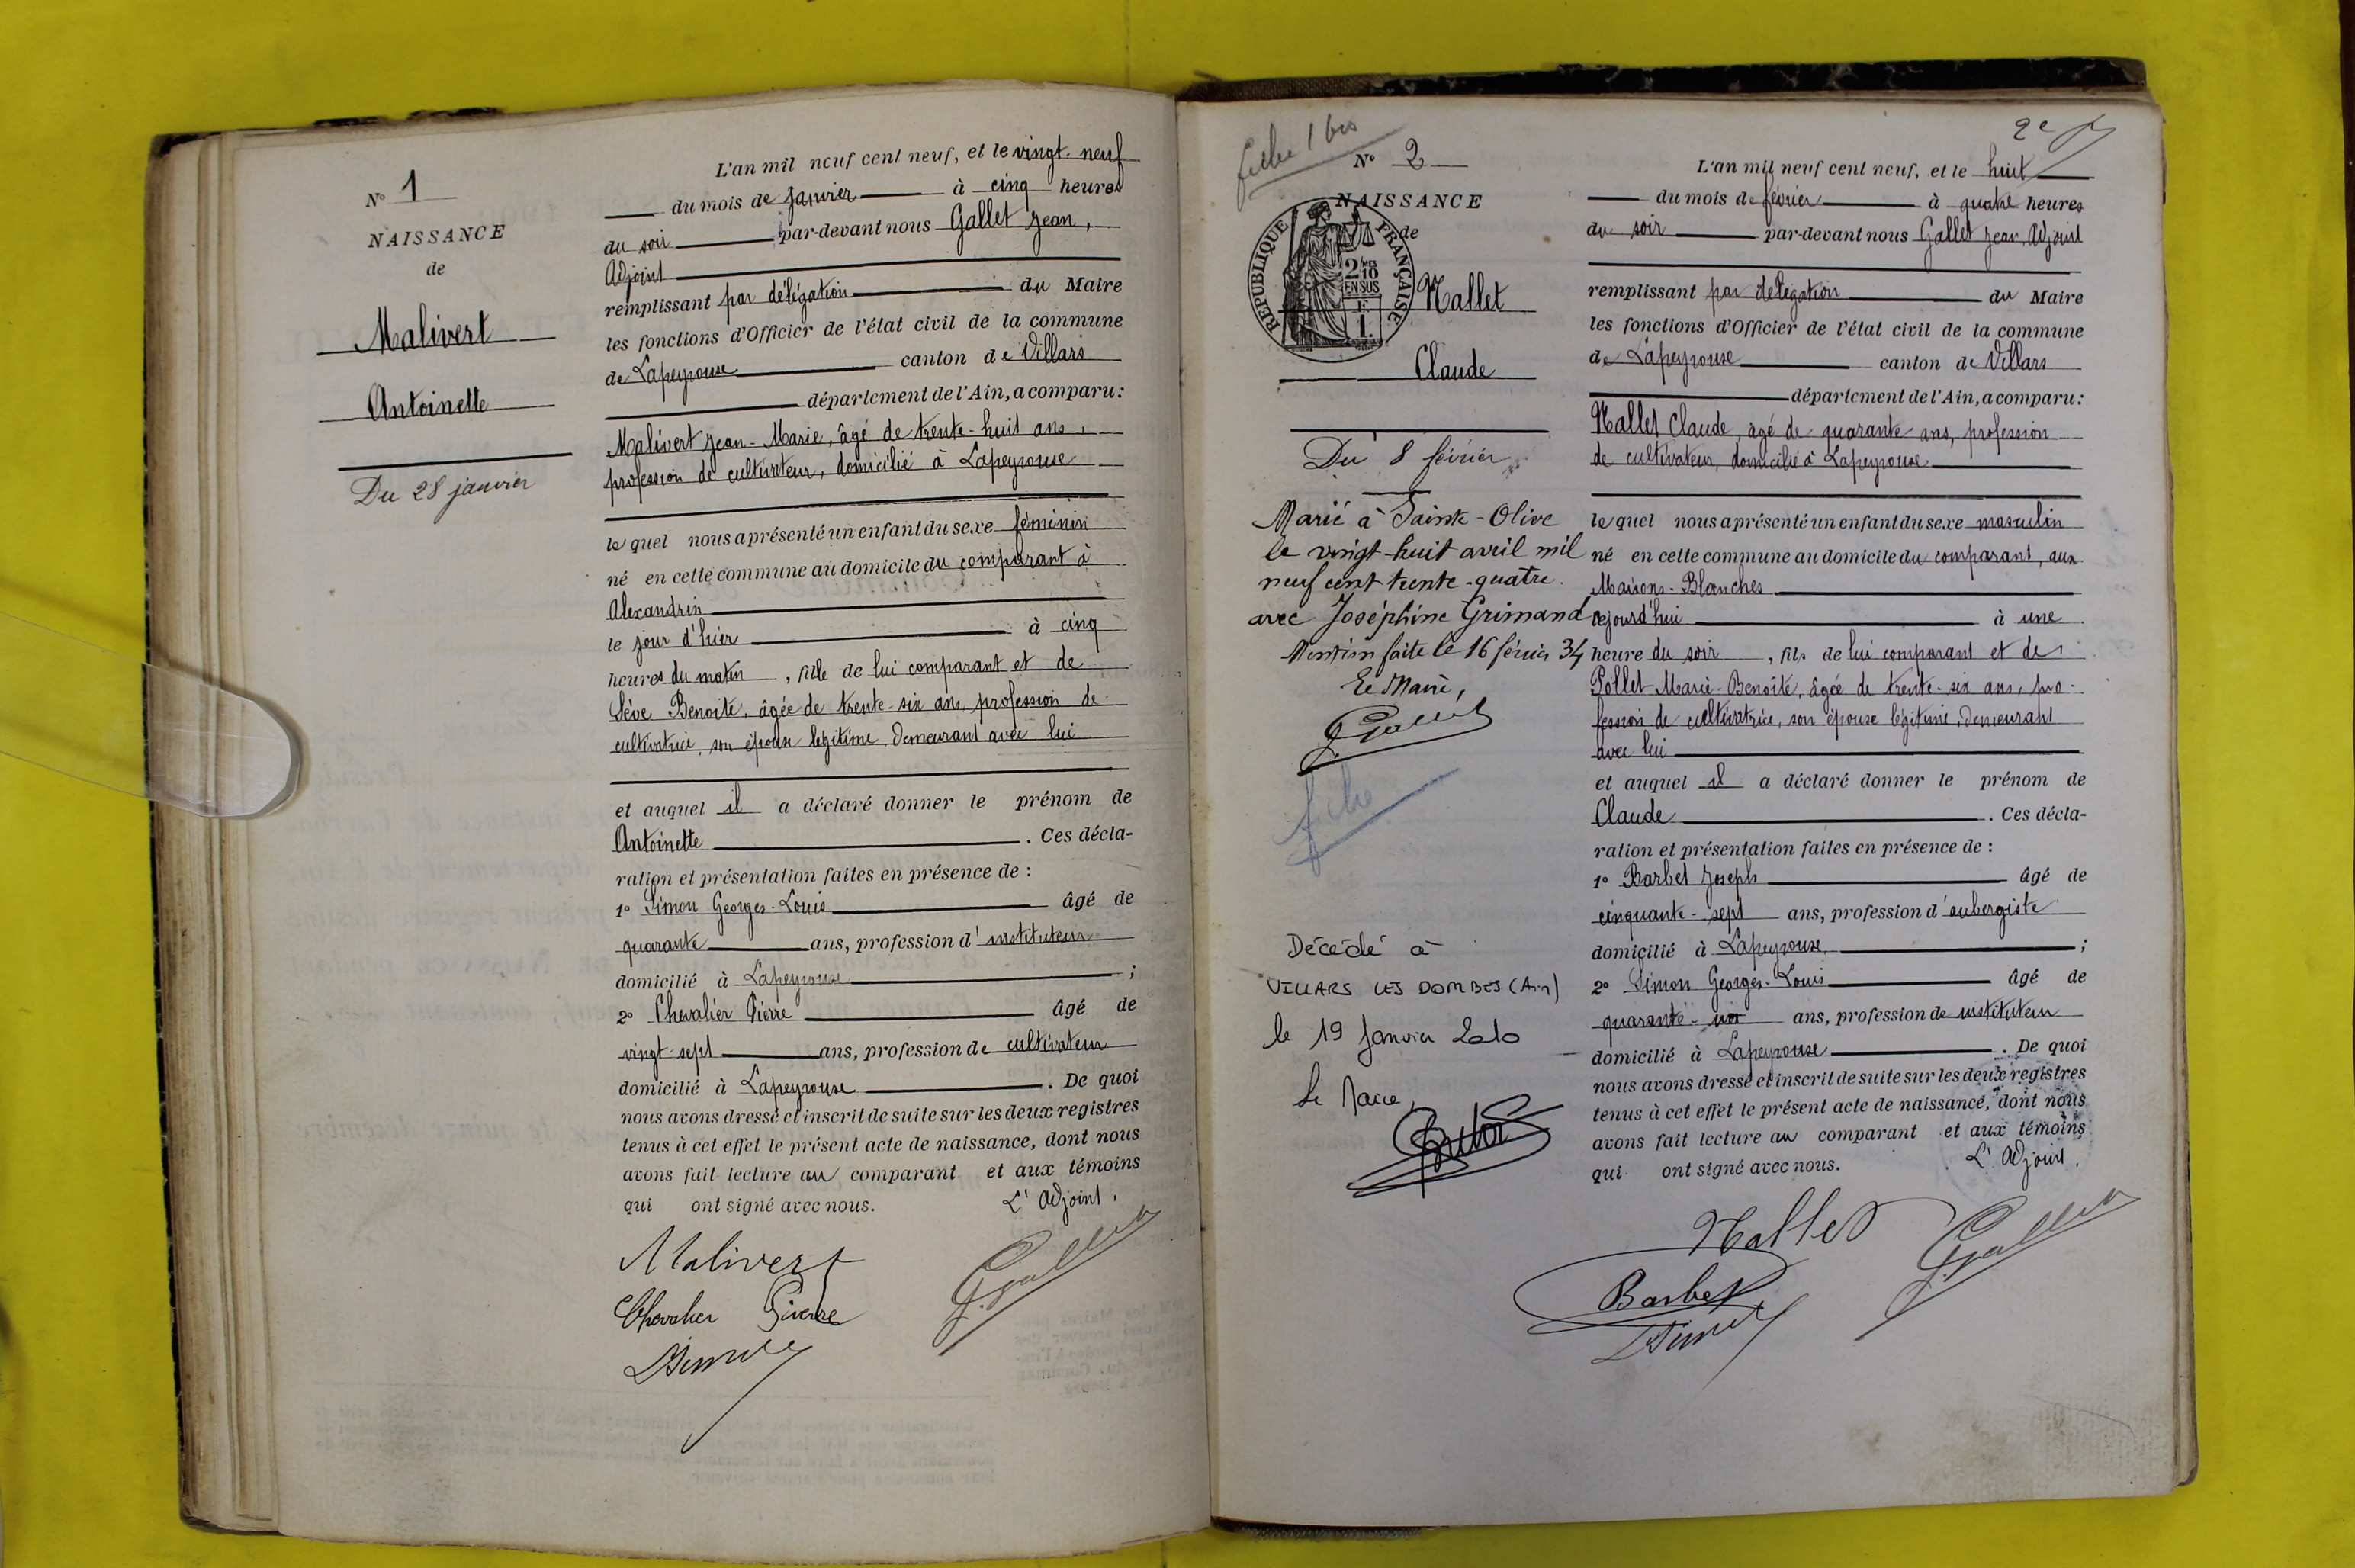 N° 1
NAISSANCE
de
Malivert
Antoinette
Du 28 janvier
L'an mil neuf cent neuf, et le vingt-neuf
du mois de janvier à cinq heures
du soir par-devant nous Gallet Jean,
Adjoint
remplissant par délégation du Maire
les fonctions d'Officier de l'état civil de la commune
de Lapeyrouse canton de Villars
département de l'Ain, a comparu:
Malivert Jean-Marie, âgé de trente-huit ans,
profession de cultivateur, domicilié à Lapeyrouse
lequel nous a présenté un enfant du sexe féminin
né en cette commune au domicile du comparant à
Alexandrin
le jour d'hier à cinq
heures du matin, fille de lui comparant et de
Sève Benoîte, âgée de trente-six ans, profession de
cultivatrice, son épouse légitime, demeurant avec lui
et auquel il a déclaré donner le prénom de
Antoinette. Ces décla-
ration et présentation faites en présence de :
1° Simon Georges-Louis âgé de
quarante ans, profession d'instituteur
domicilié à Lapeyrouse ;
2° Chevalier Pierre âgé de
vingt-sept ans, profession de cultivateur
domicilié à Lapeyrouse. De quoi
nous avons dressé et inscrit de suite sur les deux registres
tenus à cet effet le présent acte de naissance, dont nous
avons fait lecture au comparant et aux témoins
qui ont signé avec nous. L'Adjoint,
Malivert
Chevalier Pierre
LSimon
J. Gallet
fiche 1 bis
N° 2
NAISSANCE
de
RÉPUBLIQUE FRANÇAISE
2/10
EN SUS
Nallet
Claude
Du 8 février
Marié à Sainte-Olive
le vingt-huit avril mil
neuf cent trente-quatre
avec Joséphine Grimand
Mention faite le 16 février 34
Le Maire,
fiche
Décédé à
VILLARS LES DOMBES (Ain)
le 19 Janvier 2010
Le Maire,
2e
L'an mil neuf cent neuf, et le huit
du mois de février à quatre heures
du soir par-devant nous Gallet Jean, Adjoint
remplissant par délégation du Maire
les fonctions d'Officier de l'état civil de la commune
de Lapeyrouse canton de Villars
département de l'Ain, a comparu:
Nallet Claude, âgé de quarante ans, profession
de cultivateur, domicilié à Lapeyrouse
lequel nous a présenté un enfant du sexe masculin
né en cette commune au domicile du comparant, aux
Maisons-Blanches
aujourd'hui à une
heure du soir, fils de lui comparant et de
Pollet Marie-Benoîte, âgée de trente-six ans, pro-
fession de cultivatrice, son épouse légitime, demeurant
avec lui
et auquel il a déclaré donner le prénom de
Claude. Ces décla-
ration et présentation faites en présence de :
1° Barbet Joseph âgé de
cinquante-sept ans, profession d'aubergiste
domicilié à Lapeyrouse ;
2° Simon Georges-Louis âgé de
quarante ans, profession de instituteur
domicilié à Lapeyrouse. De quoi
nous avons dressé et inscrit de suite sur les deux registres
tenus à cet effet le présent acte de naissance, dont nous
avons fait lecture au comparant et aux témoins
qui ont signé avec nous. L'Adjoint,
Nallet
Barbet
LSimon
J. Gallet